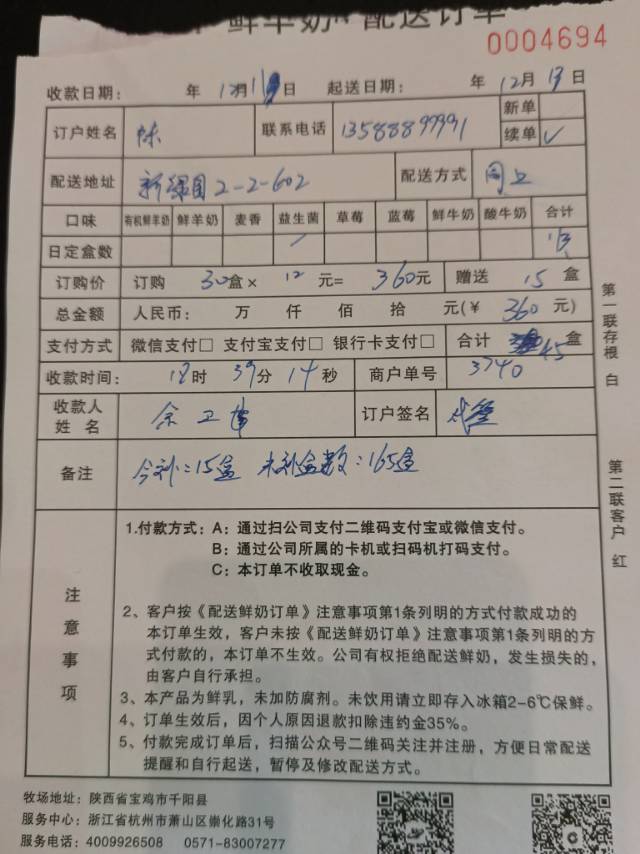 鲜羊奶 配送订单
0004694
收款日期: 年 12月 日 起送日期: 年 12月 13日
订户姓名 陈 联系电话 13588899991 新单
续单 ✓
配送地址 新绿园2-2-602 配送方式 同上
口味 有机鲜羊奶 鲜羊奶 麦香 益生菌 草莓 蓝莓 鲜牛奶 酸牛奶 合计
日定盒数
订购价 订购 30盒× 12 元= 360元 赠送 15 盒
总金额 人民币: 万 仟 佰 拾 元(¥ 360 元)
支付方式 微信支付□ 支付宝支付□ 银行卡支付□ 合计 45 盒
收款时间: 12时 39分 14秒 商户单号 3740
收款人
姓 名 余卫 订户签名
备注 今补:15盒 未补盒数:165盒
注意事项
1.付款方式: A: 通过扫公司支付二维码支付宝或微信支付。
B: 通过公司所属的卡机或扫码机打码支付。
C: 本订单不收取现金。
2、客户按《配送鲜奶订单》注意事项第1条列明的方式付款成功的
本订单生效，客户未按《配送鲜奶订单》注意事项第1条列明的方
式付款的，本订单不生效。公司有权拒绝配送鲜奶，发生损失的，
由客户自行承担。
3、本产品为鲜乳，未加防腐剂。未饮用请立即存入冰箱2-6℃保鲜。
4、订单生效后，因个人原因退款扣除违约金35%。
5、付款完成订单后，扫描公众号二维码关注并注册，方便日常配送
提醒和自行起送，暂停及修改配送方式。
第一联存根 白
第二联客户 红
牧场地址: 陕西省宝鸡市千阳县
服务中心: 浙江省杭州市萧山区崇化路31号
服务电话: 4009926508 0571-83007277